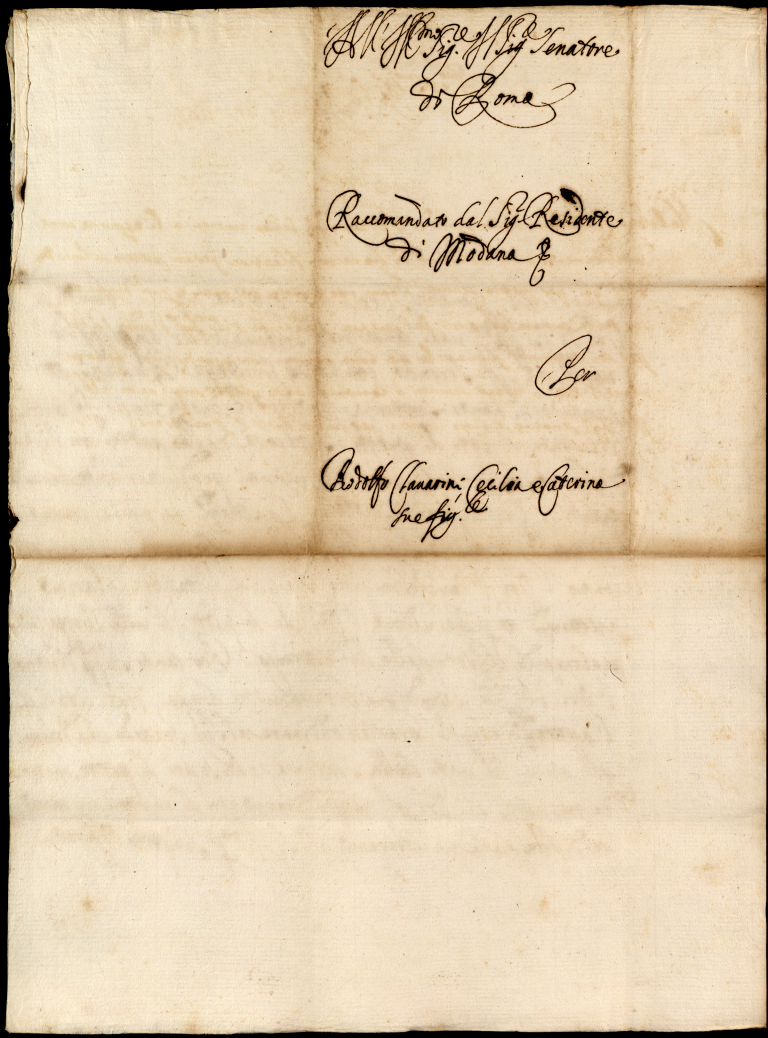 All Ill.mo Sig.re Il Sig.r Senatore
di Roma
Raccomandato dal Sig.r Residente
di Modana
Per
Rodolfo Clavarini Cecilia e Caterina
sue fig.le